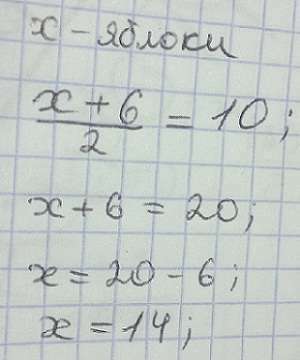 x - яблоки
(x + 6)/2 = 10;
x + 6 = 20;
x = 20 - 6;
x = 14;